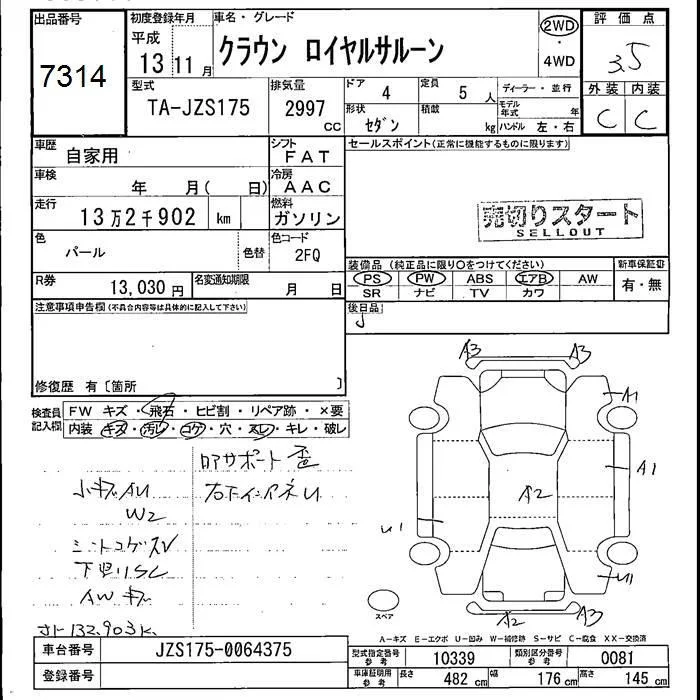 出品番号
7314
初度登録年月
平成
13 11 月
車名・グレード
クラウン ロイヤルサルーン
2WD
・
4WD
評価点
3.5
外装 内装
C C
型式
TA-JZS175
排気量
2997
CC
ドア 4
形状
セダン
定員 5 人
積載
kg
ディーラー・並行
モデル年式 年
ハンドル 左・右
車歴 自家用
シフト FAT
車検 年 月( 日)
冷房 AAC
走行 13万2千902 km
燃料 ガソリン
色 パール 色替
色コード 2FQ
R券 13,030 円
名変通知期限 月 日
セールスポイント(正常に機能するものに限ります)
売切りスタート
SELLOUT
装備品(純正品に限り○をつけてください)
PS PW ABS エアB AW
SR ナビ TV カワ
新車保証書
有・無
後日品
注意事項申告欄(不具合内容等は具体的に記入して下さい)
修復歴 有〔箇所 〕
検査員記入欄
FW キズ・飛石・ヒビ割・リペア跡・×要
内装 キズ・汚レ・コゲ・穴・スレ・キレ・破レ
小キズ AU
W2
下廻りSC
AW キズ
メーター 132,903k
A3 A3
A1
A1
A2
U1
U1
A2 A3
スペア
A-キズ E-エクボ U-凹み W-補修跡 S-サビ C-腐食 XX-交換済
車台番号 JZS175-0064375
登録番号
型式指定番号 参考 10339
類別区分番号 参考 0081
車庫証明用 参考 長さ 482 cm 幅 176 cm 高さ 145 cm